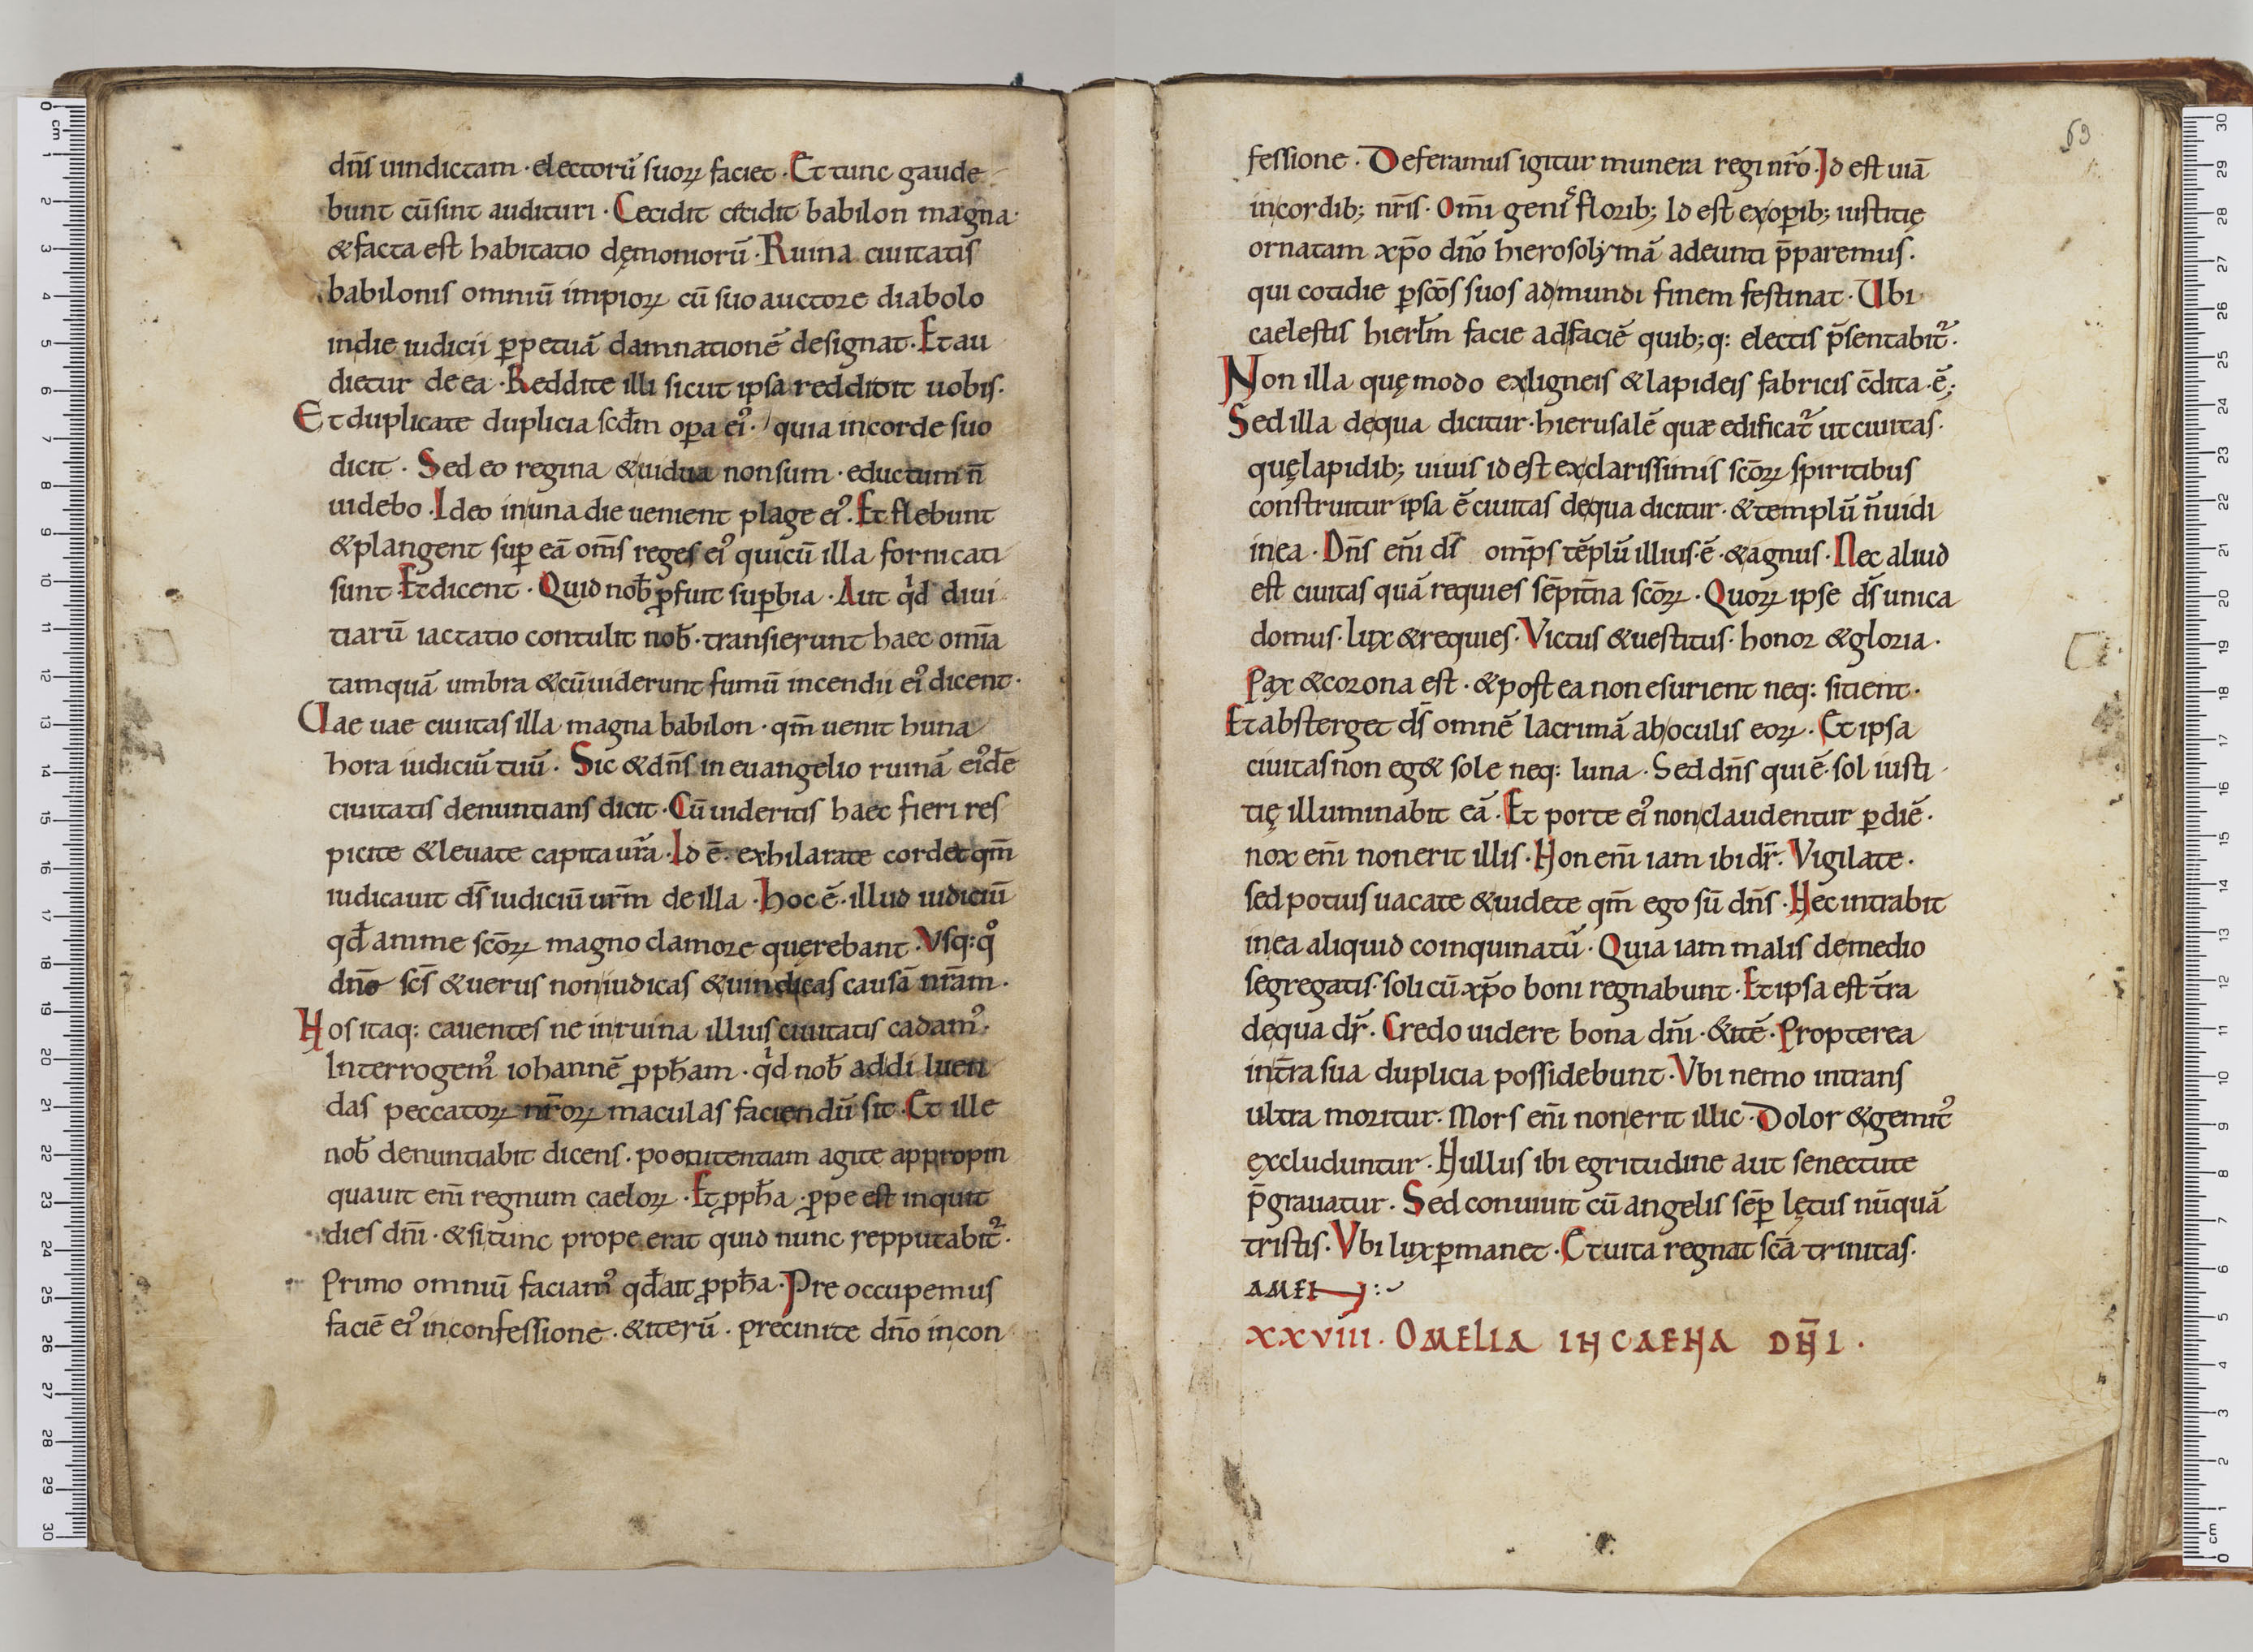 dn̄s uindictam · electorū suoꝝ faciet · Et tunc gaude
bunt cū sint audituri · Cecidit cecidit babilon magna ·
& facta est habitatio dęmoniorū · Ruina ciuitatis
babilonis omniū impioꝝ cū suo auctore diabolo
in die iudicii ꝑpetuā damnationē designat · Et au
dietur de ea · Reddite illi sicut ipsa reddidit uobis ·
Et duplicate duplicia scđm oꝑa ei᾽ · quia in corde suo
dicit · Sed eo regina & uidua non sum · & luctum n̄
uidebo · Ideo in una die uenient plage ei᾽ · Et flebunt
& plangent suꝑ eā om̄s reges ei᾽ qui cū illa fornicati
sunt · Et dicent · Quid nob̄ ꝓfuit suꝑbia · Aut qͥd diui
tiarū iactatio contulit nob̄ · transierunt haec om̄ia
tamquā umbra & cū uiderunt fumū incendii ei᾽ dicent ·
Uae uae ciuitas illa magna babilon · qm̄ uenit h una
hora iudiciū tuū · Sic & dn̄s in euangelio ruinā ei᾽dē
ciuitatis denuntians dicit · Cū uideritis haec fieri res
picite & leuate capita ur̄a · Id ē · exhilarate corda qm̄
iudicauit ds̄ iudiciū ur̄m de illa · hoc ē · illud iudiciū
qđ anime scōꝝ magno clamore quęrebant · Vsq: qͦ
dn̄e scs̄ & uerus non iudicas & uindicas causā nr̄am ·
Nos itaq: cauentes ne in ruina illius ciuitatis cadam᾽ ·
Interrogem᾽ iohannē ꝓpħam · qͥd nob̄ ad diluen
das peccatoꝝ nr̄oꝝ maculas faciendū sit · Et ille
nob̄ denuntiabit dicens · poenitentiam agite appropin
quauit eni̅ regnum caeloꝝ · Et ꝓpħa · ꝓpe est inquit
dies dn̄i · & si tunc prope erat quid nunc repputabit᾽ ·
Primo omniū faciam᾽ qđ ait ꝓpħa · Pre occupemus
faciē ei᾽ in confessione · & iterū · precinite dn̄o in con
69
fessione · Deferamus igitur munera regi nr̄o · Id est uiā
in cordib; nr̄is · Omi̅ generis florib; Id est ex oꝑib; iustitię
ornatam xp̄o dn̄o hierosolymā adeunti p̄paremus ·
qui cotidie ꝑ scōs suos ad mundi finem festinat · Ubi
caelestis hierlm̄ facie ad faciē quib; q: electis p̄sentabit᾽ ·
Non illa quę modo ex ligneis & lapideis fabricis c̄dita · ē;
Sed illa de qua dicitur · hierusalē quæ edificat᾽ ut ciuitas ·
quę lapidib; uiuis id est ex clarissimis scōꝝ spiritibus
construitur ipsa ē ciuitas de qua dicitur · & templū n̄ uidi
in ea · Dn̄s eni̅ ds̄ omp̄s tēplū illius · ē · & agnus · Nec aliud
est ciuitas quā requies sēpit̄na scōꝝ · Quoꝝ ipse ds̄ unica
domus · lux & requies · Victus & uestitus · honor & gloria ·
Pax & corona est · & post ea non esurient neq: sitient ·
Et absterget ds̄ omnē lacrimā ab oculis eoꝝ · Et ipsa
ciuitas non eg& sole neq: luna · Sed dn̄s qui ē · sol iusti
tię illuminabit eā · Et porte ei᾽ non claudentur ꝑ diē ·
nox eni̅ non erit illis · Non eni̅ iam ibi dr̄ · Vigilate ·
sed potius uacate & uidete qm̄ ego sū dn̄s · Nec intrabit
in ea aliquid coinquinatū · Quia iam malis de medio
segregatis · soli cū xp̄o boni regnabunt · Et ipsa est t̄ra
de qua dr̄ · Credo uidere bona dn̄i · & itē · Propterea
in t̄ra sua duplicia possidebunt · Vbi nemo intrans
ultra moritur · Mors eni̅ non erit illic · Dolor & gemit᾽
excluduntur · Nullus ibi egritudine aut senectute
p̄grauatur · Sed conuiuit cū angelis sēꝑ lętus nūquā
tristis · Vbi lux ꝑmanet · Et uita regnat scā trinitas ·
AMEN :~
XXVIII · OMELIA IN CAENA DN̄I ·